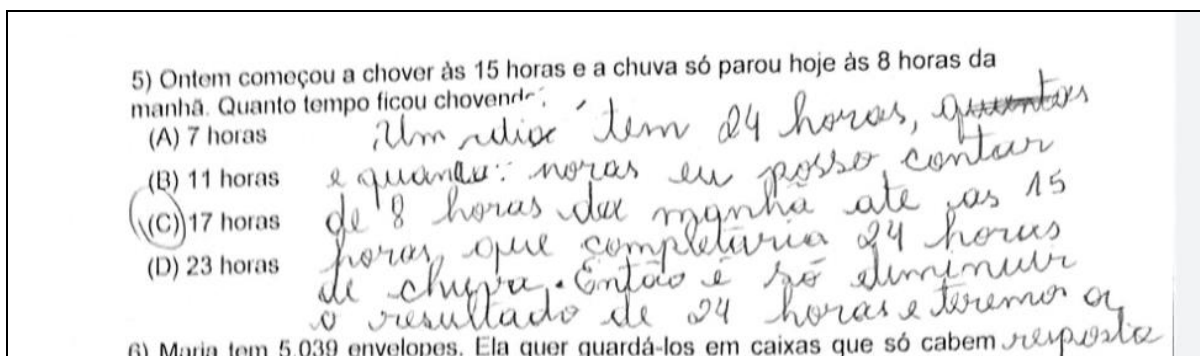 5) Ontem começou a chover às 15 horas e a chuva só parou hoje às 8 horas da
manhã. Quanto tempo ficou chovendo?
(A) 7 horas
(B) 11 horas
(C) 17 horas
(D) 23 horas
Um dia tem 24 horas, quantas
e quantas horas eu posso contar
de 8 horas da manhã ate as 15
horas, que completaria 24 horas
de chuva. Então é só diminuir
o resultado de 24 horas e teremos a
resposta
6) Maria tem 5.039 envelopes. Ela quer guardá-los em caixas que só cabem